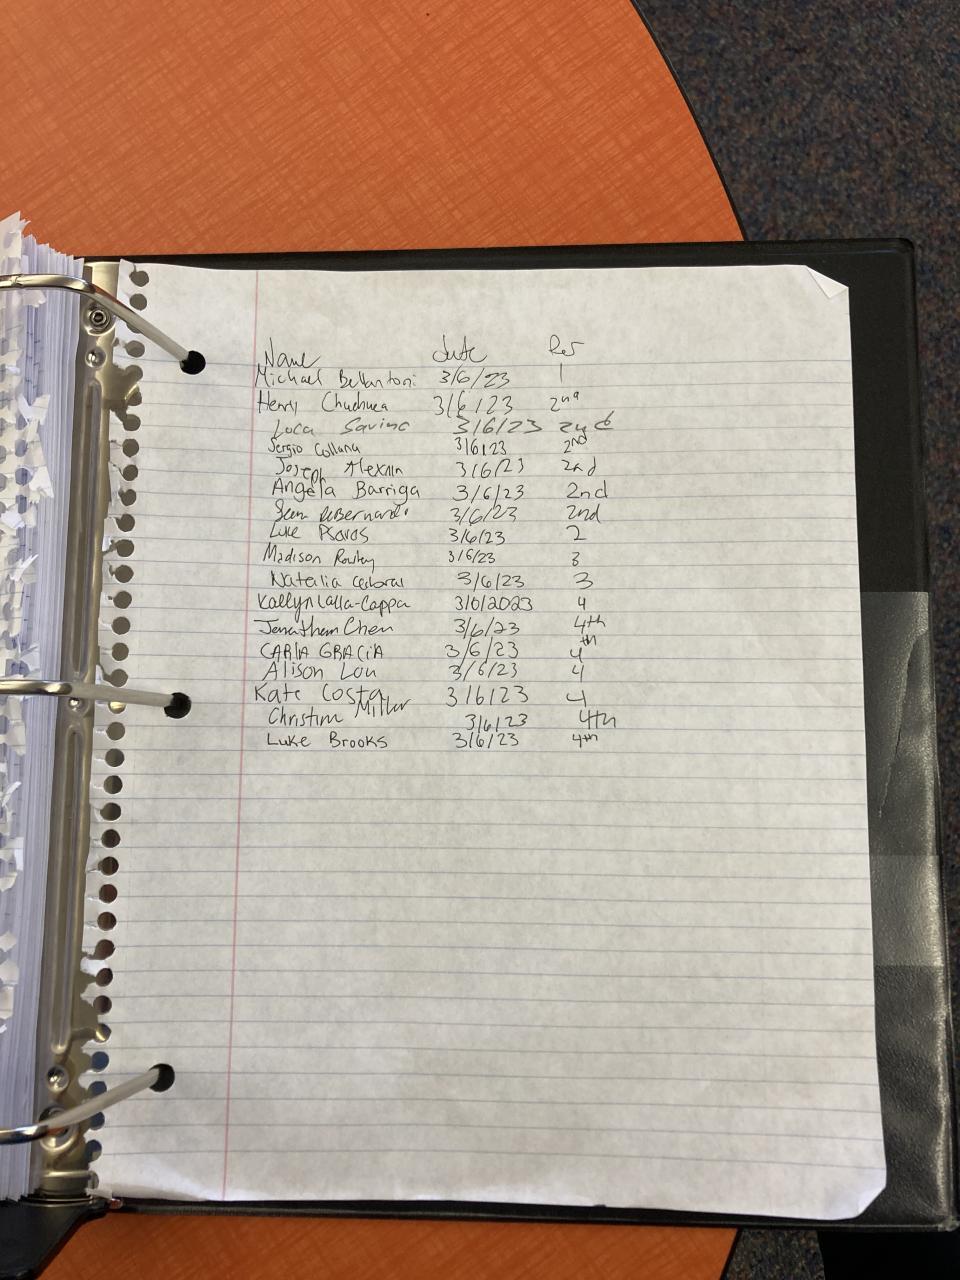 Name date Per
Michael Bellantoni 3/6/23 1
Henry 3/6/23 2nd
Luca Savino 3/6/23 2nd
Sergio Collana 3/6/23 2nd
Joseph 3/6/23 2nd
Angela Barriga 3/6/23 2nd
Sean DeBernardi 3/6/23 2nd
Luke Psaros 3/6/23 2
Madison 3/6/23 3
Natalia 3/6/23 3
Kaitlyn Lalla-Cappa 3/6/2023 4
Jonathan Chen 3/6/23 4th
CARLA GRACiA 3/6/23 4th
Alison Lou 3/6/23 4
Kate Costa 3/6/23 4
Christian Miller 3/6/23 4th
Luke Brooks 3/6/23 4th